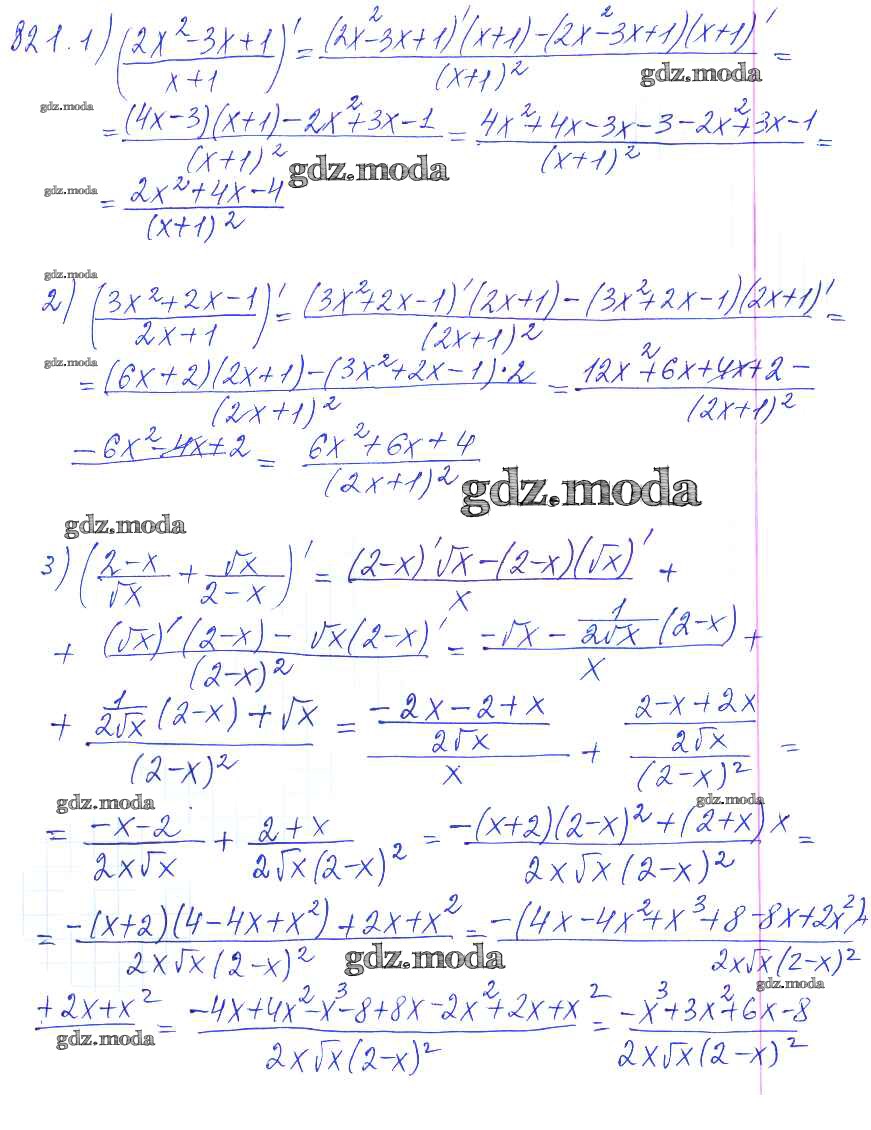 821. 1) ((2x²-3x+1)/(x+1))' = ((2x²-3x+1)'(x+1)-(2x²-3x+1)(x+1)')/(x+1)² =
gdz.moda
gdz.moda
= ((4x-3)(x+1)-2x²+3x-1)/(x+1)² = (4x²+4x-3x-3-2x²+3x-1)/(x+1)² =
gdz.moda
gdz.moda
= (2x²+4x-4)/(x+1)²
gdz.moda
2) ((3x²+2x-1)/(2x+1))' = ((3x²+2x-1)'(2x+1)-(3x²+2x-1)(2x+1)')/(2x+1)² =
gdz.moda
= ((6x+2)(2x+1)-(3x²+2x-1)·2)/(2x+1)² = (12x²+6x+4x+2-)/(2x+1)²
-6x²-4x+2 = (6x²+6x+4)/(2x+1)²
gdz.moda
gdz.moda
3) ((2-x)/√x + √x/(2-x))' = ((2-x)'√x-(2-x)(√x)')/x +
+ ((√x)'(2-x)-√x(2-x)')/(2-x)² = (-√x-1/(2√x)(2-x))/x +
+ (1/(2√x)(2-x)+√x)/(2-x)² = ((-2x-2+x)/(2√x))/x + ((2-x+2x)/(2√x))/(2-x)² =
gdz.moda
gdz.moda
= (-x-2)/(2x√x) + (2+x)/(2√x(2-x)²) = (-(x+2)(2-x)²+(2+x)x)/(2x√x(2-x)²) =
= (-(x+2)(4-4x+x²)+2x+x²)/(2x√x(2-x)²) = (-(4x-4x²+x³+8-8x+2x²)+)/(2x√x(2-x)²)
gdz.moda
gdz.moda
+2x+x² = (-4x+4x²-x³-8+8x-2x²+2x+x²)/(2x√x(2-x)²) = (-x³+3x²+6x-8)/(2x√x(2-x)²)
gdz.moda